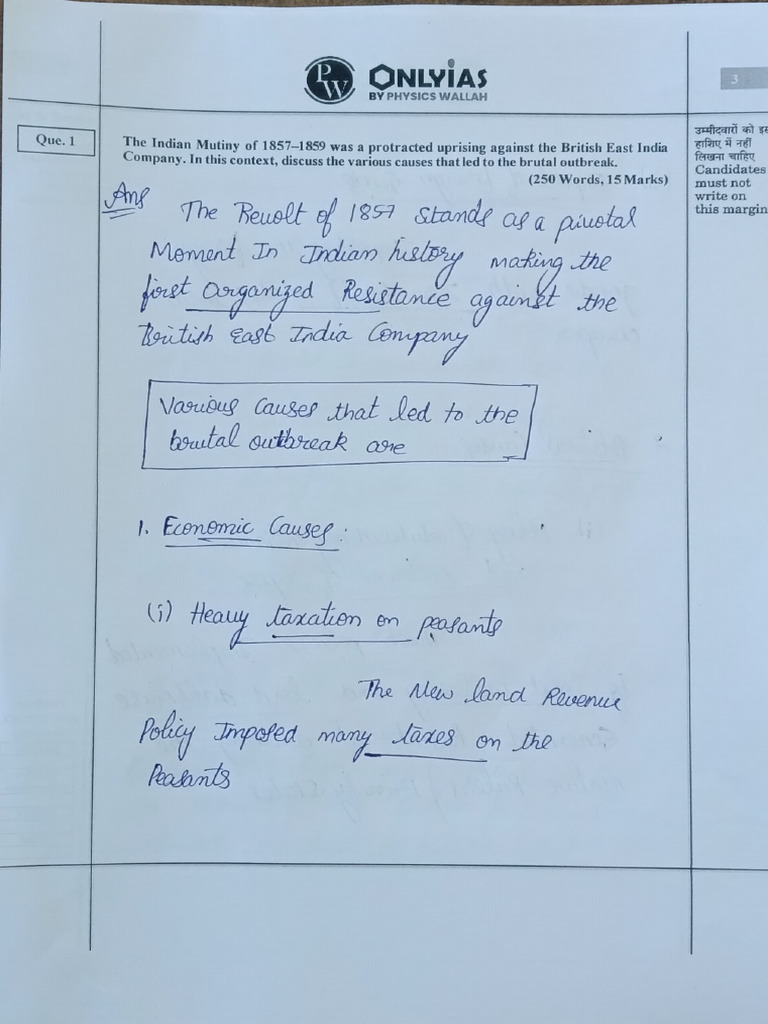 PW
ONLYIAS
BY PHYSICS WALLAH
3
Que. 1
The Indian Mutiny of 1857–1859 was a protracted uprising against the British East India
Company. In this context, discuss the various causes that led to the brutal outbreak.
(250 Words, 15 Marks)
उम्मीदवारों को इस
हाशिए में नहीं
लिखना चाहिए
Candidates
must not
write on
this margin
Ans
The Revolt of 1857 stands as a pivotal
Moment In Indian history making the
first Organized Resistance against the
British East India Company
Various causes that led to the
brutal outbreak are
1. Economic Causes:
(i) Heavy taxation on peasants
The New land Revenue
Policy Imposed many taxes on the
Peasants